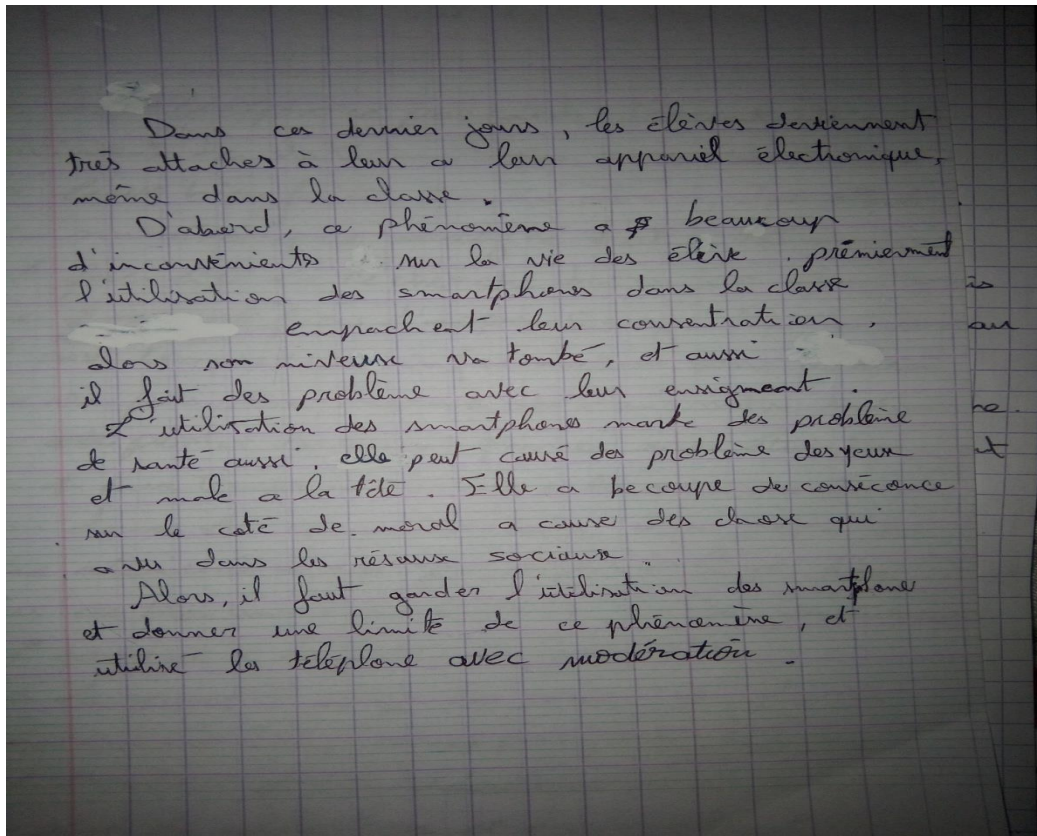 Dans ces dernier jours, les élèves deviennent
très attaches à leur a leur appariel électronique,
même dans la classe.
D'abord, ce phénomène a beaucoup
d'inconvénients sur la vie des élève. prémierment
l'utilisation des smartphones dans la classe
empachent leur consentration,
alors son niveuse va tombé, et aussi
il fait des problème avec leur ensigneant.
L'utilisation des smartphones marke des problème
de santé aussi. elle peut causé des problème des yeux
et male a la tête. Elle a becoupe de conséconce
sur le coté de moral a cause des chose qui
a vu dans les résause sociause.
Alors, il faut garder l'utilisation des smartplone
et donner une limite de ce phénomène, et
utilisé les téléplone avec modération.
is
au
he.
t